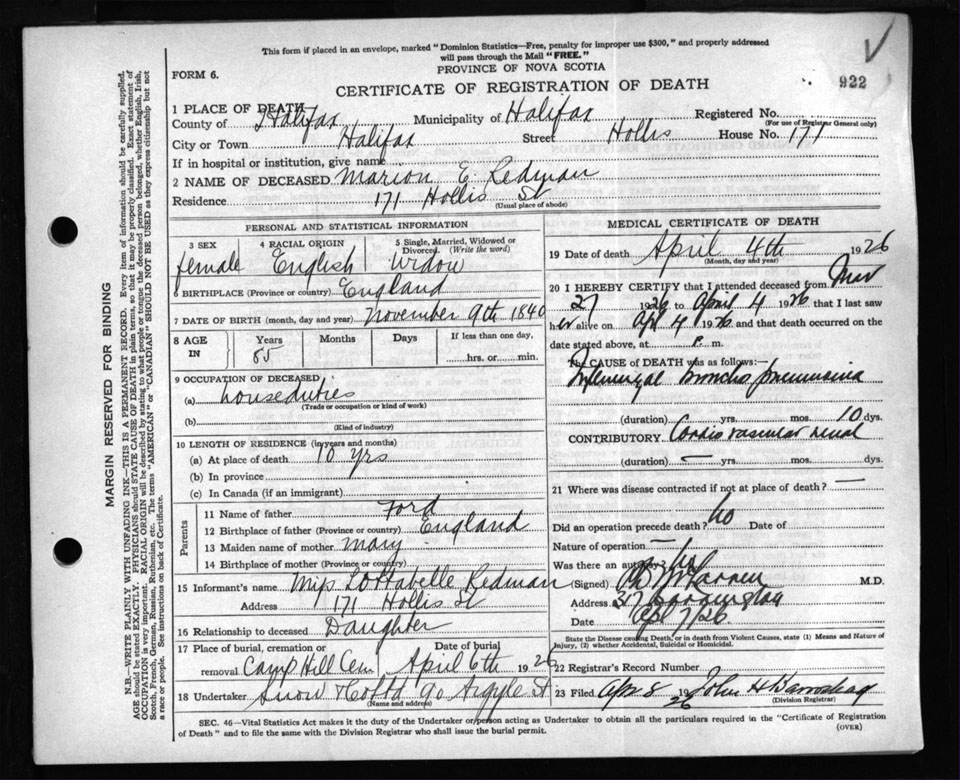 This form if placed in an envelope, marked "Dominion Statistics—Free, penalty for improper use $300," and properly addressed
will pass through the Mail "FREE."
PROVINCE OF NOVA SCOTIA
FORM 6.
922
CERTIFICATE OF REGISTRATION OF DEATH
1 PLACE OF DEATH
County of Halifax Municipality of Halifax Registered No.
(For use of Registrar General only)
City or Town Halifax Street Hollis House No. 171
If in hospital or institution, give name
2 NAME OF DECEASED Marion E. Redman
Residence 171 Hollis St
(Usual place of abode)
PERSONAL AND STATISTICAL INFORMATION
3 SEX 4 RACIAL ORIGIN 5 Single, Married, Widowed or
Divorced. (Write the word)
female English Widow
6 BIRTHPLACE (Province or country) England
7 DATE OF BIRTH (month, day and year) November 9th 1840
8 AGE IN Years Months Days If less than one day,
85 hrs. or min.
9 OCCUPATION OF DECEASED
(a) houseduties
(Trade or occupation or kind of work)
(b)
(Kind of industry)
10 LENGTH OF RESIDENCE (in years and months)
(a) At place of death 10 yrs
(b) In province
(c) In Canada (if an immigrant)
Parents
11 Name of father Ford
12 Birthplace of father (Province or country) England
13 Maiden name of mother Mary
14 Birthplace of mother (Province or country)
15 Informant's name Miss Redman
Address 171 Hollis St
16 Relationship to deceased Daughter
17 Place of burial, cremation or Date of burial
removal Camp Hill Cem April 6th 1926
18 Undertaker Snow & Co Ltd 90 Argyle St
(Name and address)
MEDICAL CERTIFICATE OF DEATH
19 Date of death April 4th 1926
(Month, day and year)
20 I HEREBY CERTIFY that I attended deceased from Mar
27 1926 to April 4 1926 that I last saw
her alive on Apl 4 1926 and that death occurred on the
date stated above, at P. m.
The CAUSE OF DEATH was as follows:—
Influenzal Broncho pneumonia
(duration) yrs. mos. 10 dys.
CONTRIBUTORY Cardio vascular renal
(duration) — yrs. mos. dys.
21 Where was disease contracted if not at place of death? —
Did an operation precede death? no Date of
Nature of operation —
Was there an autopsy? no
(Signed) M.D.
Address 317 Barrington
Date Apl 7/26
State the Disease causing Death, or in death from Violent Causes, state (1) Means and Nature of
Injury, (2) whether Accidental, Suicidal or Homicidal.
22 Registrar's Record Number
23 Filed Apr 8 1926 John H
(Division Registrar)
SEC. 46—Vital Statistics Act makes it the duty of the Undertaker or person acting as Undertaker to obtain all the particulars required in the "Certificate of Registration
of Death" and to file the same with the Division Registrar who shall issue the burial permit.
(OVER)
MARGIN RESERVED FOR BINDING
N.B.—WRITE PLAINLY WITH UNFADING INK—THIS IS A PERMANENT RECORD. Every item of information should be carefully supplied.
AGE should be stated EXACTLY. PHYSICIANS should STATE CAUSE OF DEATH in plain terms, so that it may be properly classified. Exact statement of
OCCUPATION is very important. RACIAL ORIGIN will be described by stating to what people or tongue the deceased person belonged, whether English, Irish,
Scotch, French, German, Russian, Ruthenian, etc. The terms "AMERICAN" or "CANADIAN" SHOULD NOT BE USED as they express citizenship but not
a race or people. See instructions on back of Certificate.